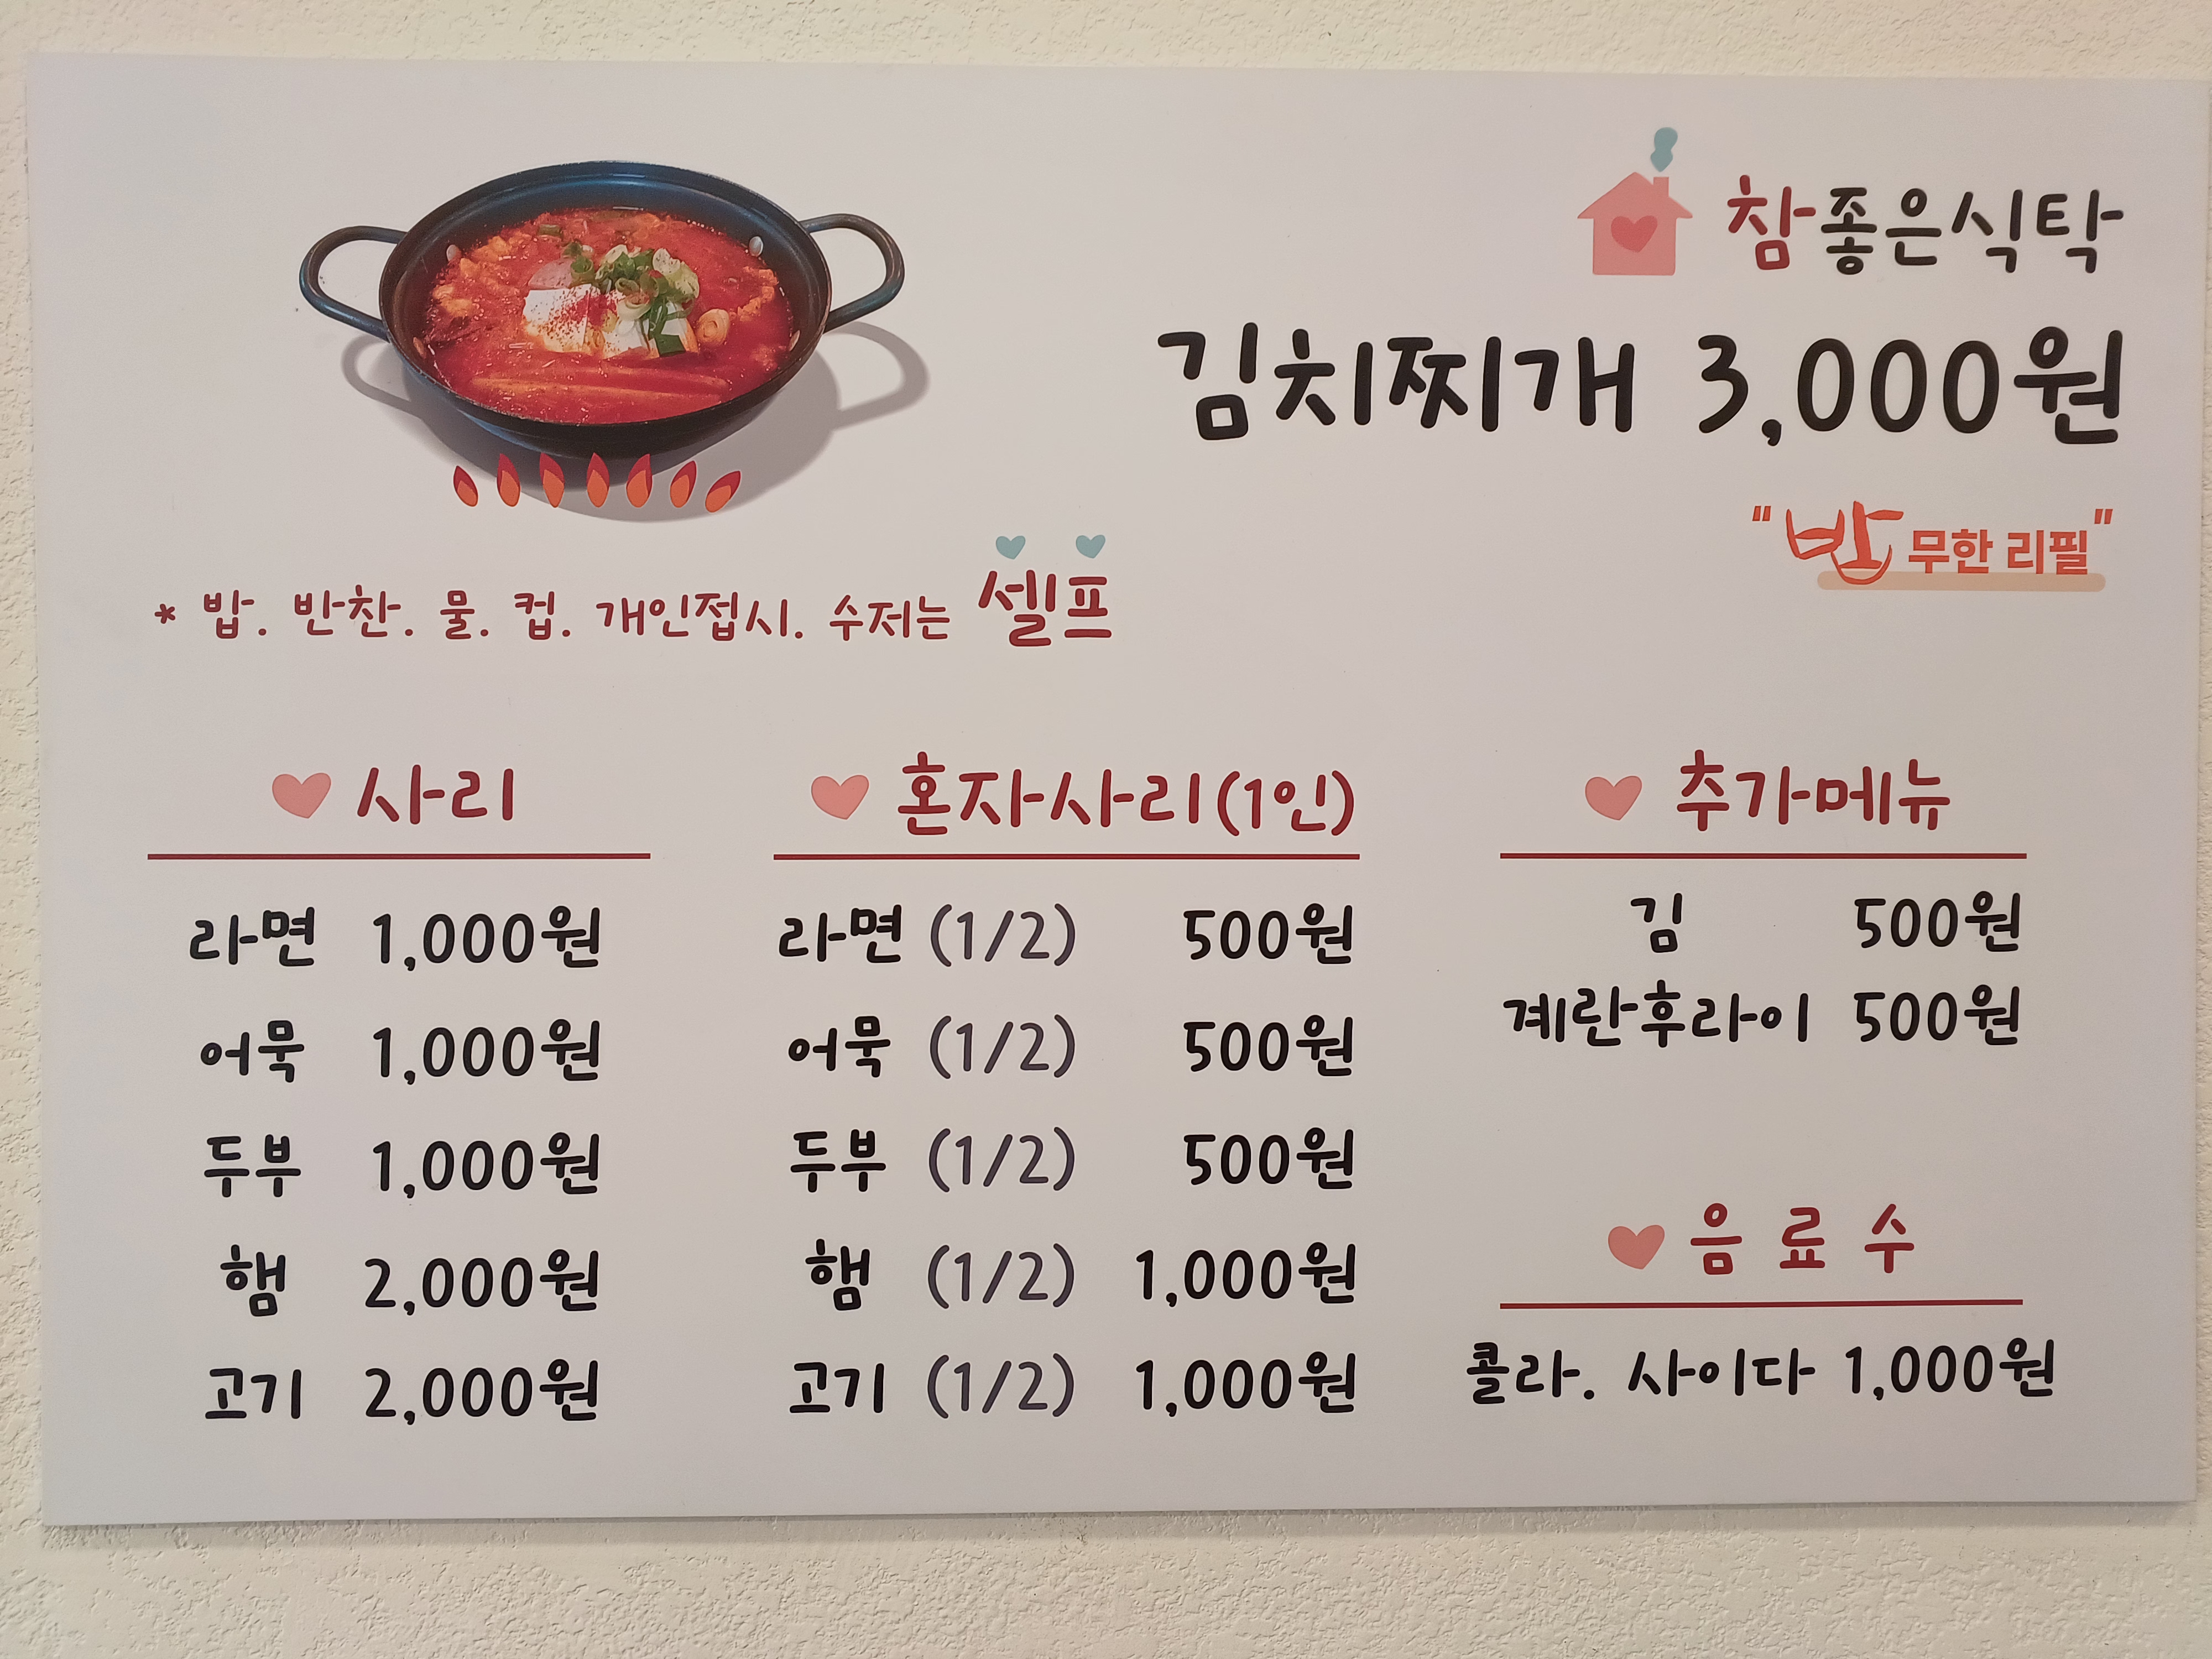 참좋은식탁
김치찌개 3,000원
"밥 무한 리필"
* 밥. 반찬. 물. 컵. 개인접시. 수저는 셀프
사리
라면 1,000원
어묵 1,000원
두부 1,000원
햄 2,000원
고기 2,000원
혼자사리(1인)
라면 (1/2) 500원
어묵 (1/2) 500원
두부 (1/2) 500원
햄 (1/2) 1,000원
고기 (1/2) 1,000원
추가메뉴
김 500원
계란후라이 500원
음 료 수
콜라. 사이다 1,000원